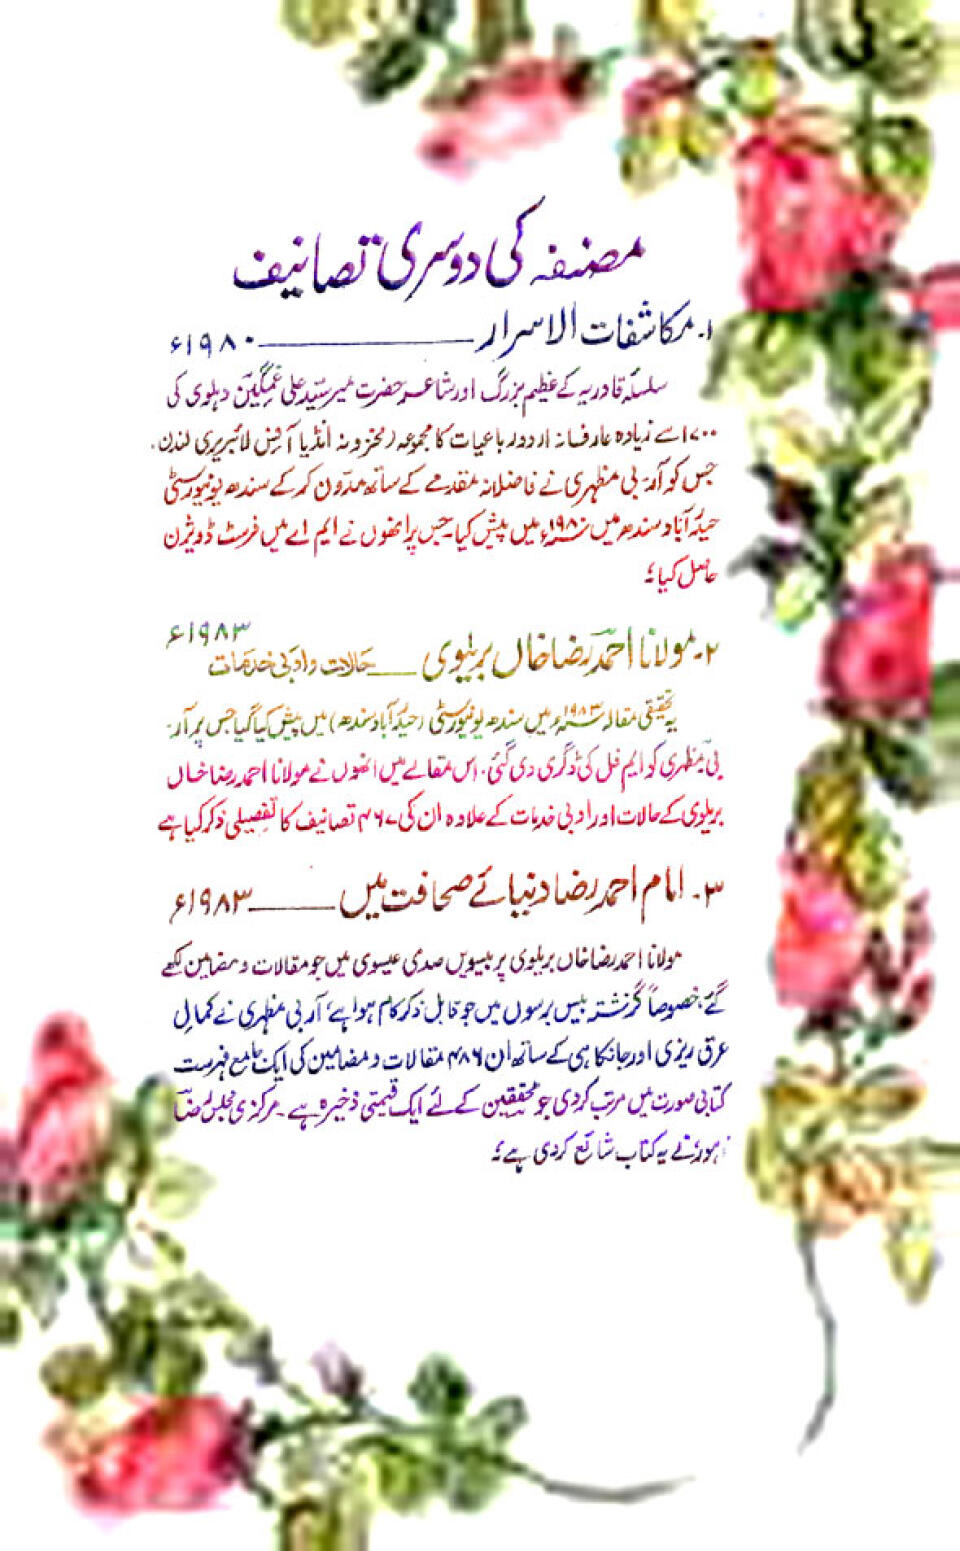 مصنفہ کی دوسری تصانیف
۱۔ مکاشفات الاسرار ــــــــــ ۱۹۸۰ء
سلسلۂ قادریہ کے عظیم بزرگ اور شاعر حضرت میر سید علی غمگین دہلوی کی
۱۷۰۰ سے زیادہ عارفانہ اردو رباعیات کا مجموعہ (مخزونہ انڈیا آفس لائبریری لندن،
جس کو آر۔ بی مظہری نے فاضلانہ مقدمے کے ساتھ مدوّن کرکے سندھ یونیورسٹی
حیدرآباد سندھ میں ۱۹۸۰ء میں پیش کیا۔ جس پر انھوں نے ایم اے میں فرسٹ ڈویژن
حاصل کیا؛
۲۔ مولانا احمد رضا خاں بریلوی ــــ حالات و ادبی خدمات ۱۹۸۳ء
یہ تحقیقی مقالہ ۱۹۸۳ء میں سندھ یونیورسٹی (حیدرآباد سندھ) میں پیش کیا گیا جس پر آر۔
بی مظہری کو ایم فل کی ڈگری دی گئی۔ اس مقالے میں انھوں نے مولانا احمد رضا خاں
بریلوی کے حالات اور ادبی خدمات کے علاوہ ان کی ۴۶۷ تصانیف کا تفصیلی ذکر کیا ہے
۳۔ امام احمد رضا دنیائے صحافت میں ــــــــ ۱۹۸۳ء
مولانا احمد رضا خاں بریلوی پر بیسویں صدی عیسوی میں جو مقالات و مضامین لکھے
گئے، خصوصاً گزشتہ بیس برسوں میں جو قابل ذکر کام ہوا ہے، آر بی مظہری نے کمالِ
عرق ریزی اور جانکاہی کے ساتھ ان ۴۸۶ مقالات و مضامین کی ایک جامع فہرست
کتابی صورت میں مرتب کردی جو محققین کے لئے ایک قیمتی ذخیرہ ہے۔ مرکزی مجلس رضا
لاہور نے یہ کتاب شائع کردی ہے؛